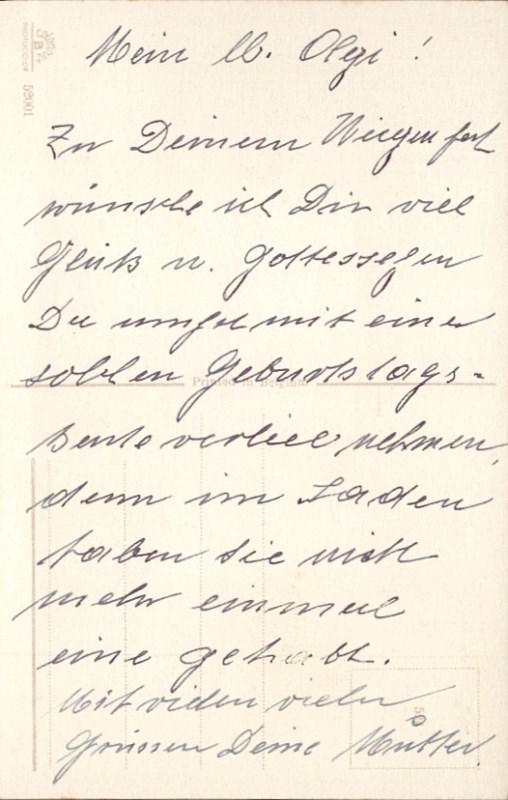 Mein lb. Olgi!
Zu Deinem Wiegenfest
wünsche ich Dir viel
Glück u. Gottessegen
Du mußt mit einer
solchen Geburtstags-
karte vorlieb nehmen,
denn im Laden
haben sie nicht
mehr einmal
eine gehabt.
Mit vielen vielen
Grüssen Deine Mutter.
Printed in Belgium
PHOTOCOLOR
52001